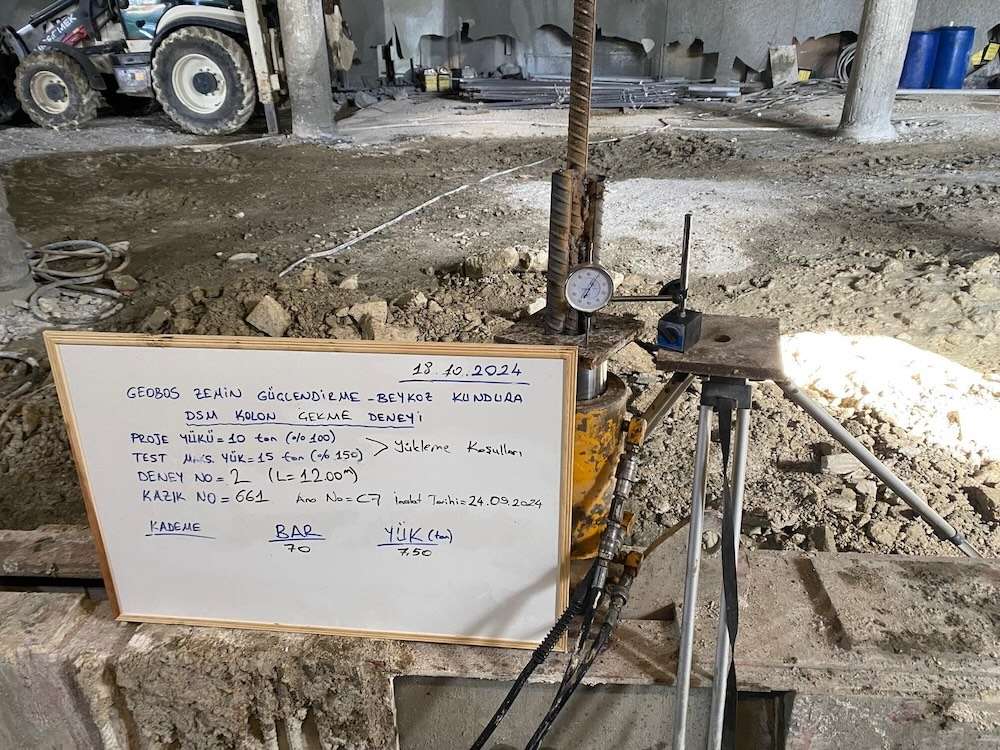 18.10.2024
GEOBOS ZEMİN GÜÇLENDİRME - BEYKOZ KUNDURA
DSM KOLON ÇEKME DENEYİ
PROJE YÜKÜ = 10 ton (%100)
TEST YÜK = 15 ton (%150)
> Yükleme Koşulları
DENEY NO = 2 (L = 12.00m)
KAZIK NO = 661 Ano No = C7 İmalat Tarihi = 24.09.2024
KADEME BAR YÜK (ton)
70 7,50